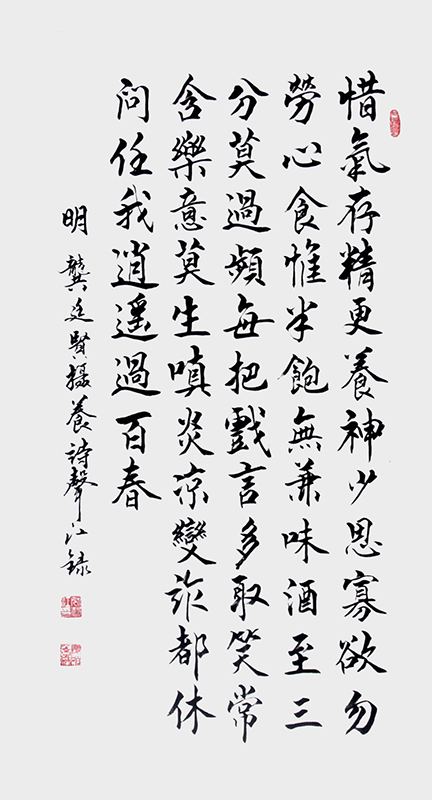 惜氣存精更養神少思寡欲勿
勞心食惟半飽無兼味酒至三
分莫過頻每把戲言多取笑常
含樂意莫生嗔炎涼變詐都休
問任我逍遥過百春
明 龔廷賢攝養詩聲江錄